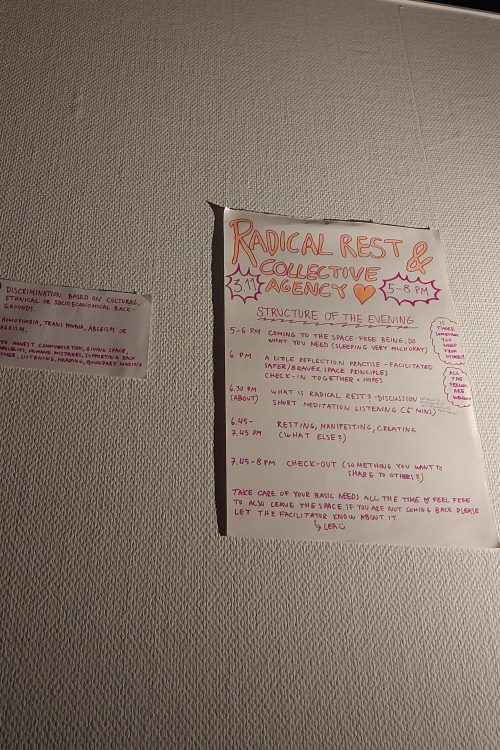 DISCRIMINATION BASED ON CULTURAL,
ETHNICAL OR SOCIOECONOMICAL BACK-
GROUNDS.
HOMOPHOBIA, TRANSPHOBIA, ABLEISM OR
AGEISM.
TO HONEST COMMUNICATION, GIVING SPACE,
HUMANE MISTAKES, SUPPORTING EACH
LISTENING, HEARING, BOUNDARY MAKING
RADICAL REST &
COLLECTIVE
AGENCY
3.11
5-8 PM
STRUCTURE OF THE EVENING
5-6 PM COMING TO THE SPACE: FREE BEING, DO
WHAT YOU NEED (SLEEPING VERY MUCH OKAY)
6 PM A LITLE REFLECTION PRACTISE - FACILITATED
SAFER/BRAVER SPACE PRINCIPLES
CHECK-IN TOGETHER + HOPES
6.30 PM WHAT IS RADICAL REST? - DISCUSSION
(ABOUT) SHORT MEDITATION LISTENING (5 MINS)
6.45- RESTING, MANIFESTING, CREATING
7.45 PM (WHAT ELSE?)
7.45-8 PM CHECK-OUT (SOMETHING YOU WANT TO
SHARE TO OTHERS?)
TAKE CARE OF YOUR BASIC NEEDS ALL THE TIME & FEEL FREE
TO ALSO LEAVE THE SPACE. IF YOU ARE NOT COMING BACK PLEASE
LET THE FACILITATOR KNOW ABOUT IT.
LEA
IS
THERE
SOMETHING
YOU
NEED
FROM
OTHERS?
ALL
THE
FEELINGS
ARE
WELCOME